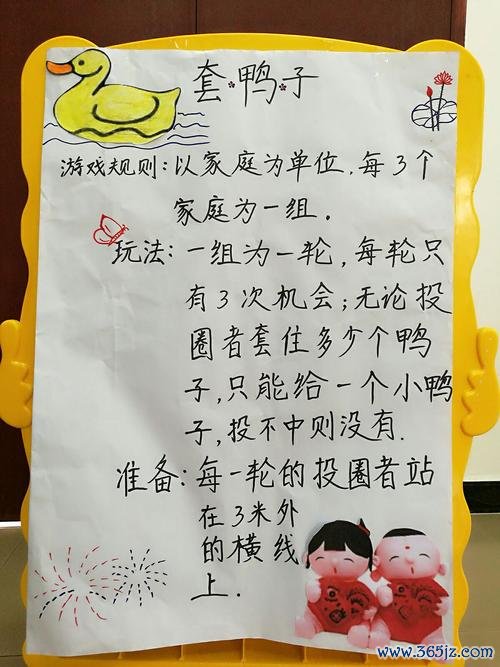 套·鸭·子
游戏规则:以家庭为单位,每3个
家庭为一组。
玩法:一组为一轮,每轮只
有3次机会;无论投
圈者套住多少个鸭
子,只能给一个小鸭
子,投不中则没有.
准备:每一轮的投圈者站
在3米外
的横线
上.
www.365jz.com